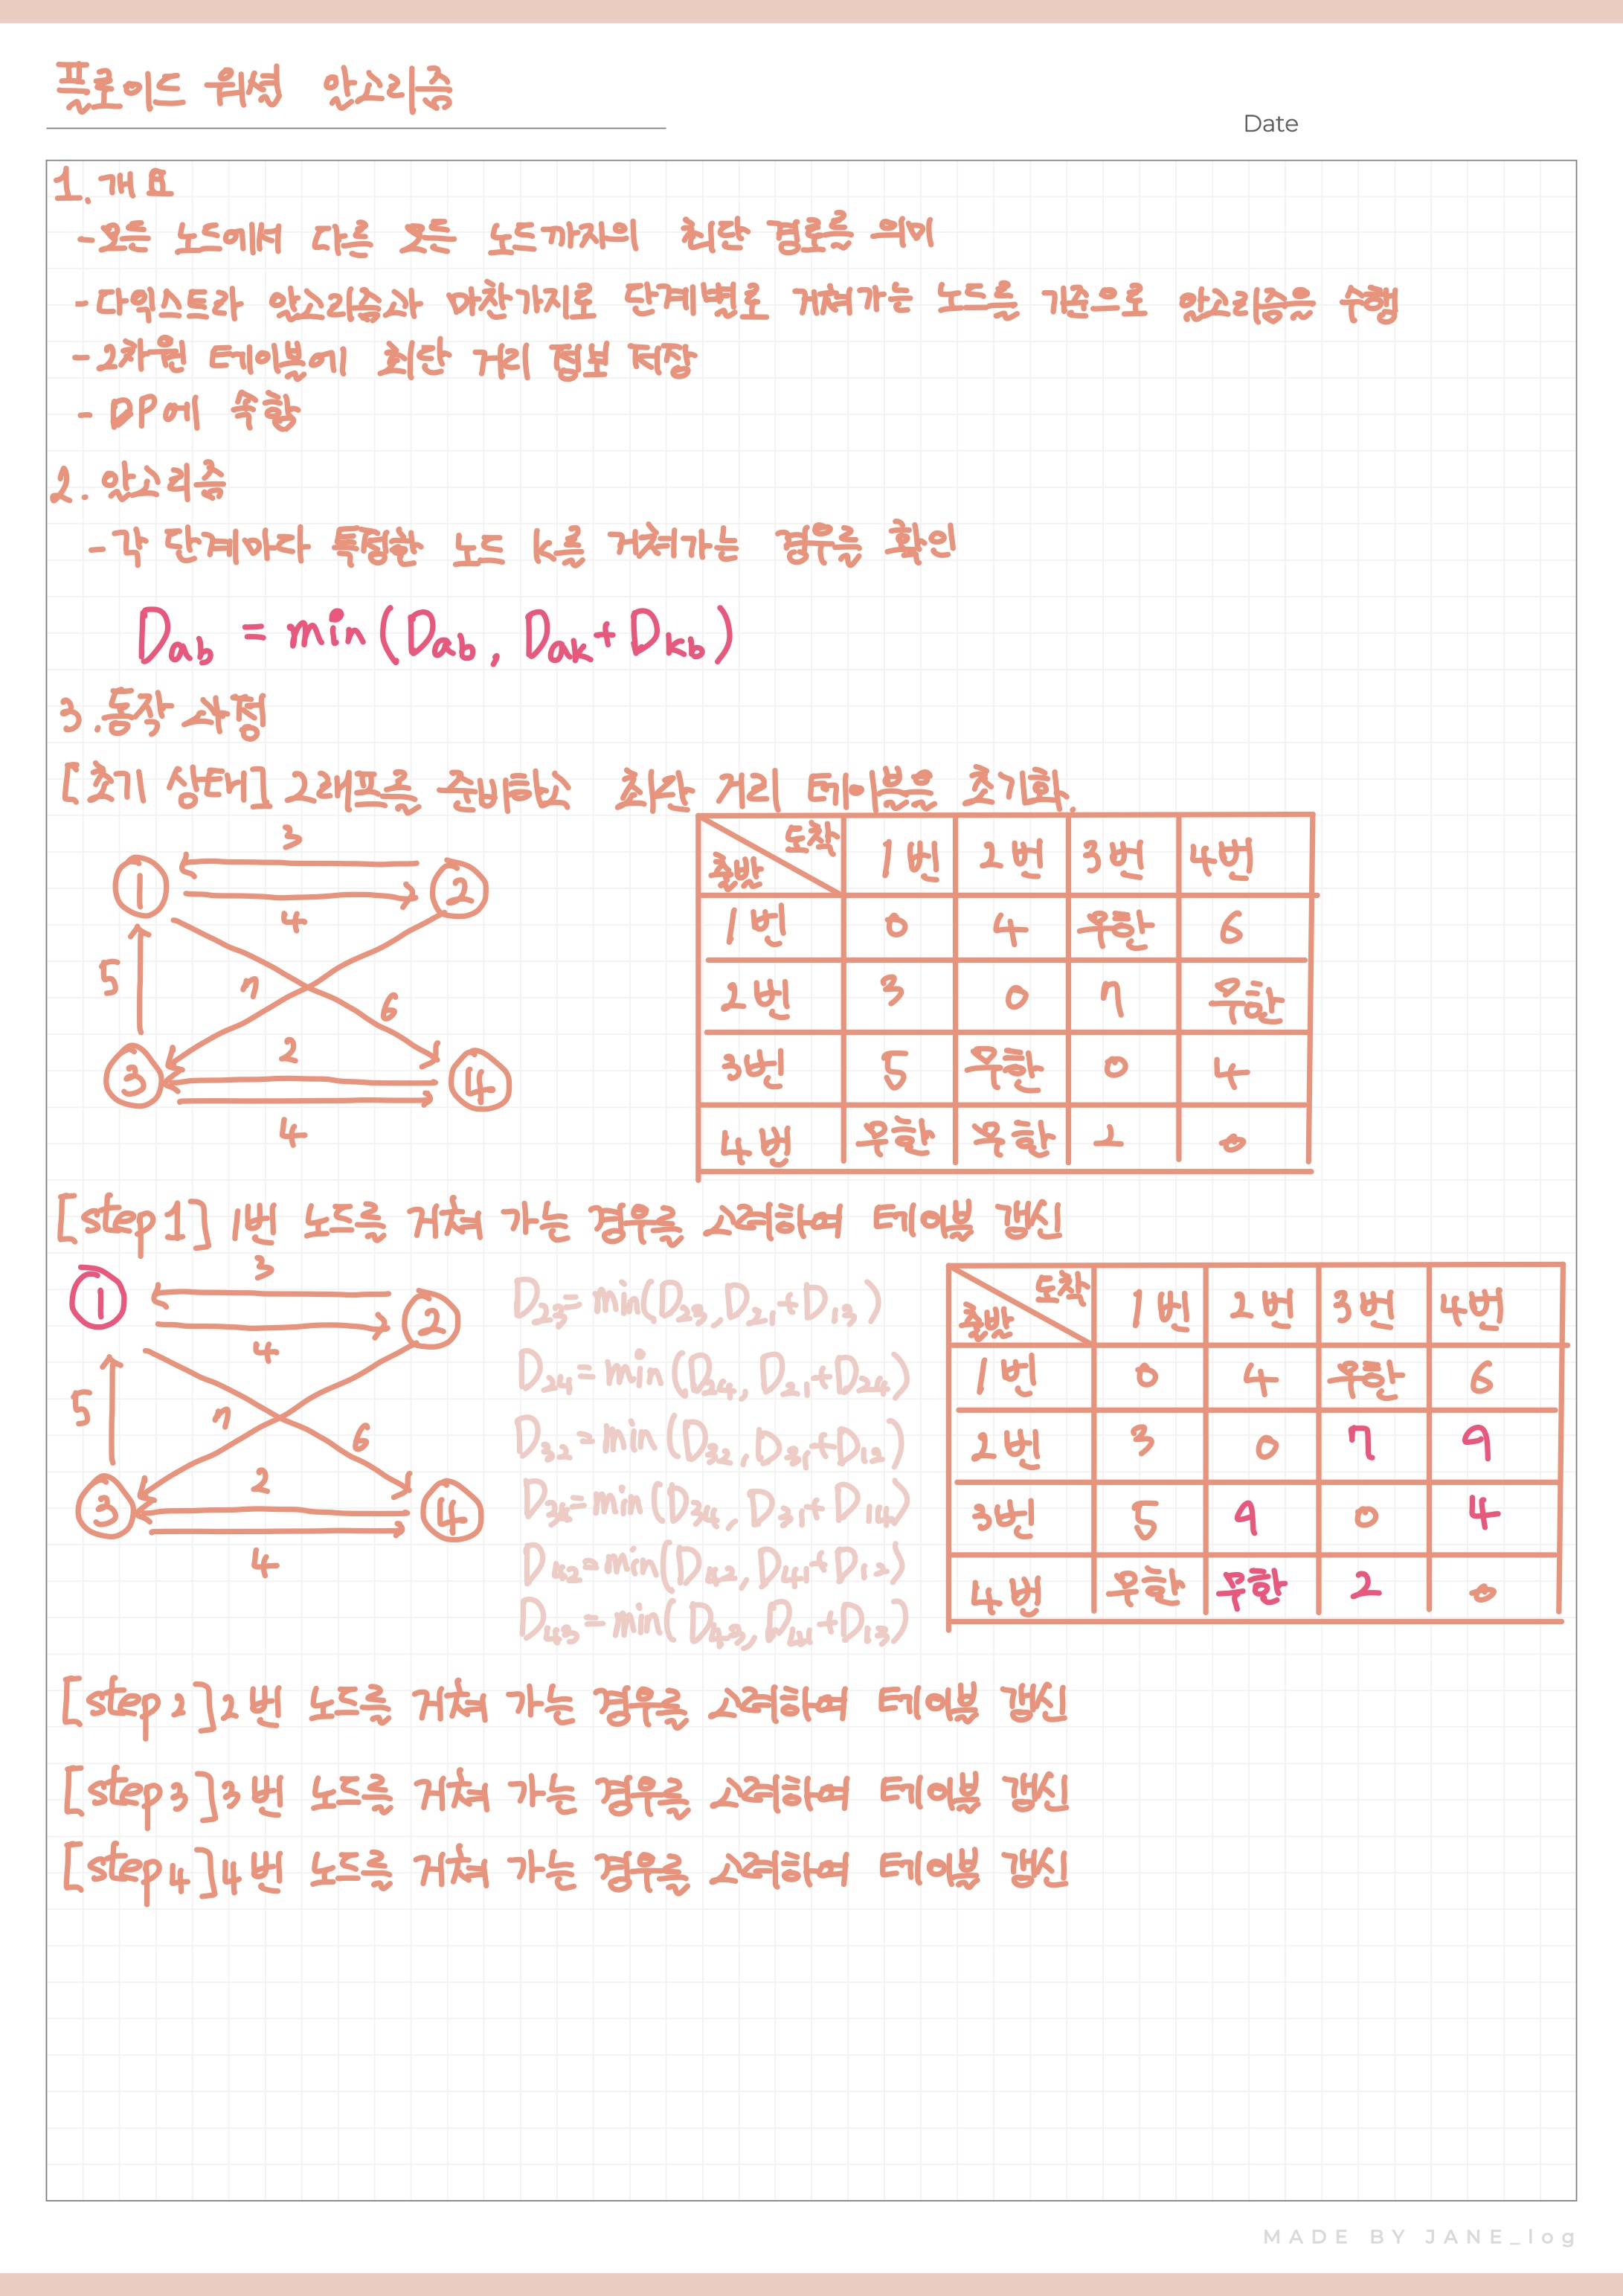 플로이드 워셜 알고리즘
Date
1. 개요
- 모든 노드에서 다른 모든 노드까지의 최단 경로를 의미
- 다익스트라 알고리즘과 마찬가지로 단계별로 거쳐가는 노드를 기준으로 알고리즘을 수행
- 2차원 테이블에 최단 거리 정보 저장
- DP에 속함
2. 알고리즘
- 각 단계마다 특정한 노드 k를 거쳐가는 경우를 확인
Dab = min(Dab, Dak+Dkb)
3. 동작 과정
[초기 상태] 그래프를 준비하고 최단 거리 테이블을 초기화.
3
1 2
4
5 7 6
2
3 4
4
출발 도착 1번 2번 3번 4번
1번 0 4 무한 6
2번 3 0 7 무한
3번 5 무한 0 4
4번 무한 무한 2 0
[step1] 1번 노드를 거쳐 가는 경우를 고려하여 테이블 갱신
3
1 2
4
5 7 6
2
3 4
4
D23=min(D23, D21+D13)
D24=min(D24, D21+D24)
D32=min(D32, D31+D12)
D34=min(D34, D31+D14)
D42=min(D42, D41+D12)
D43=min(D43, D41+D13)
출발 도착 1번 2번 3번 4번
1번 0 4 무한 6
2번 3 0 7 9
3번 5 9 0 4
4번 무한 무한 2 0
[step2] 2번 노드를 거쳐 가는 경우를 고려하여 테이블 갱신
[step3] 3번 노드를 거쳐 가는 경우를 고려하여 테이블 갱신
[step4] 4번 노드를 거쳐 가는 경우를 고려하여 테이블 갱신
MADE BY JANE_log